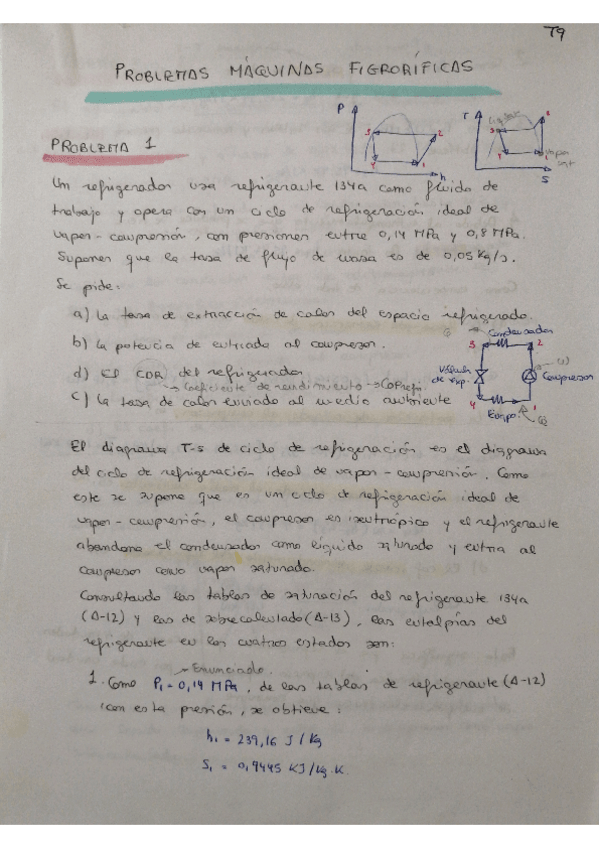 79
PROBLEMAS MÁQUINAS FIGRORÍFICAS
P
3
2
4
1
h
T
3
2
4
S
PROBLEMA 1
Un refrigerador usa refrigerante 134a como fluido de
trabajo y opera con un ciclo de refrigeración ideal de
vapor-compresión, con presiones entre 0,14 MPa y 0,8 MPa.
Suponer que la tasa de flujo de masa es de 0,05 Kg/s.
Se pide:
a) La tasa de extracción de calor del espacio refrigerado.
b) La potencia de entrada al compresor.
d) El COR del refrigerador
→ Coeficiente de rendimiento → COPrefri.
c) La tasa de calor enviado al medio ambiente
Condensador
3
2
Válvula
de exp.
Compresor
4
1
Evapo.
El diagrama T-s de ciclo de refrigeración es el diagrama
del ciclo de refrigeración ideal de vapor-compresión. Como
este se supone que es un ciclo de refrigeración ideal de
vapor-compresión, el compresor es isentrópico y el refrigerante
abandona el condensador como líquido saturado y entra al
compresor como vapor saturado.
Consultando las tablas de saturación del refrigerante 134a
(A-12) y las de sobrecalentado (A-13), las entalpías del
refrigerante en los cuatros estados son:
→ Enunciado.
1. Como P₁ = 0,14 MPa, de las tablas de refrigerante (A-12)
con esta presión, se obtiene:
h₁ = 239,16 J/Kg
S₁ = 0,9445 KJ/Kg·K